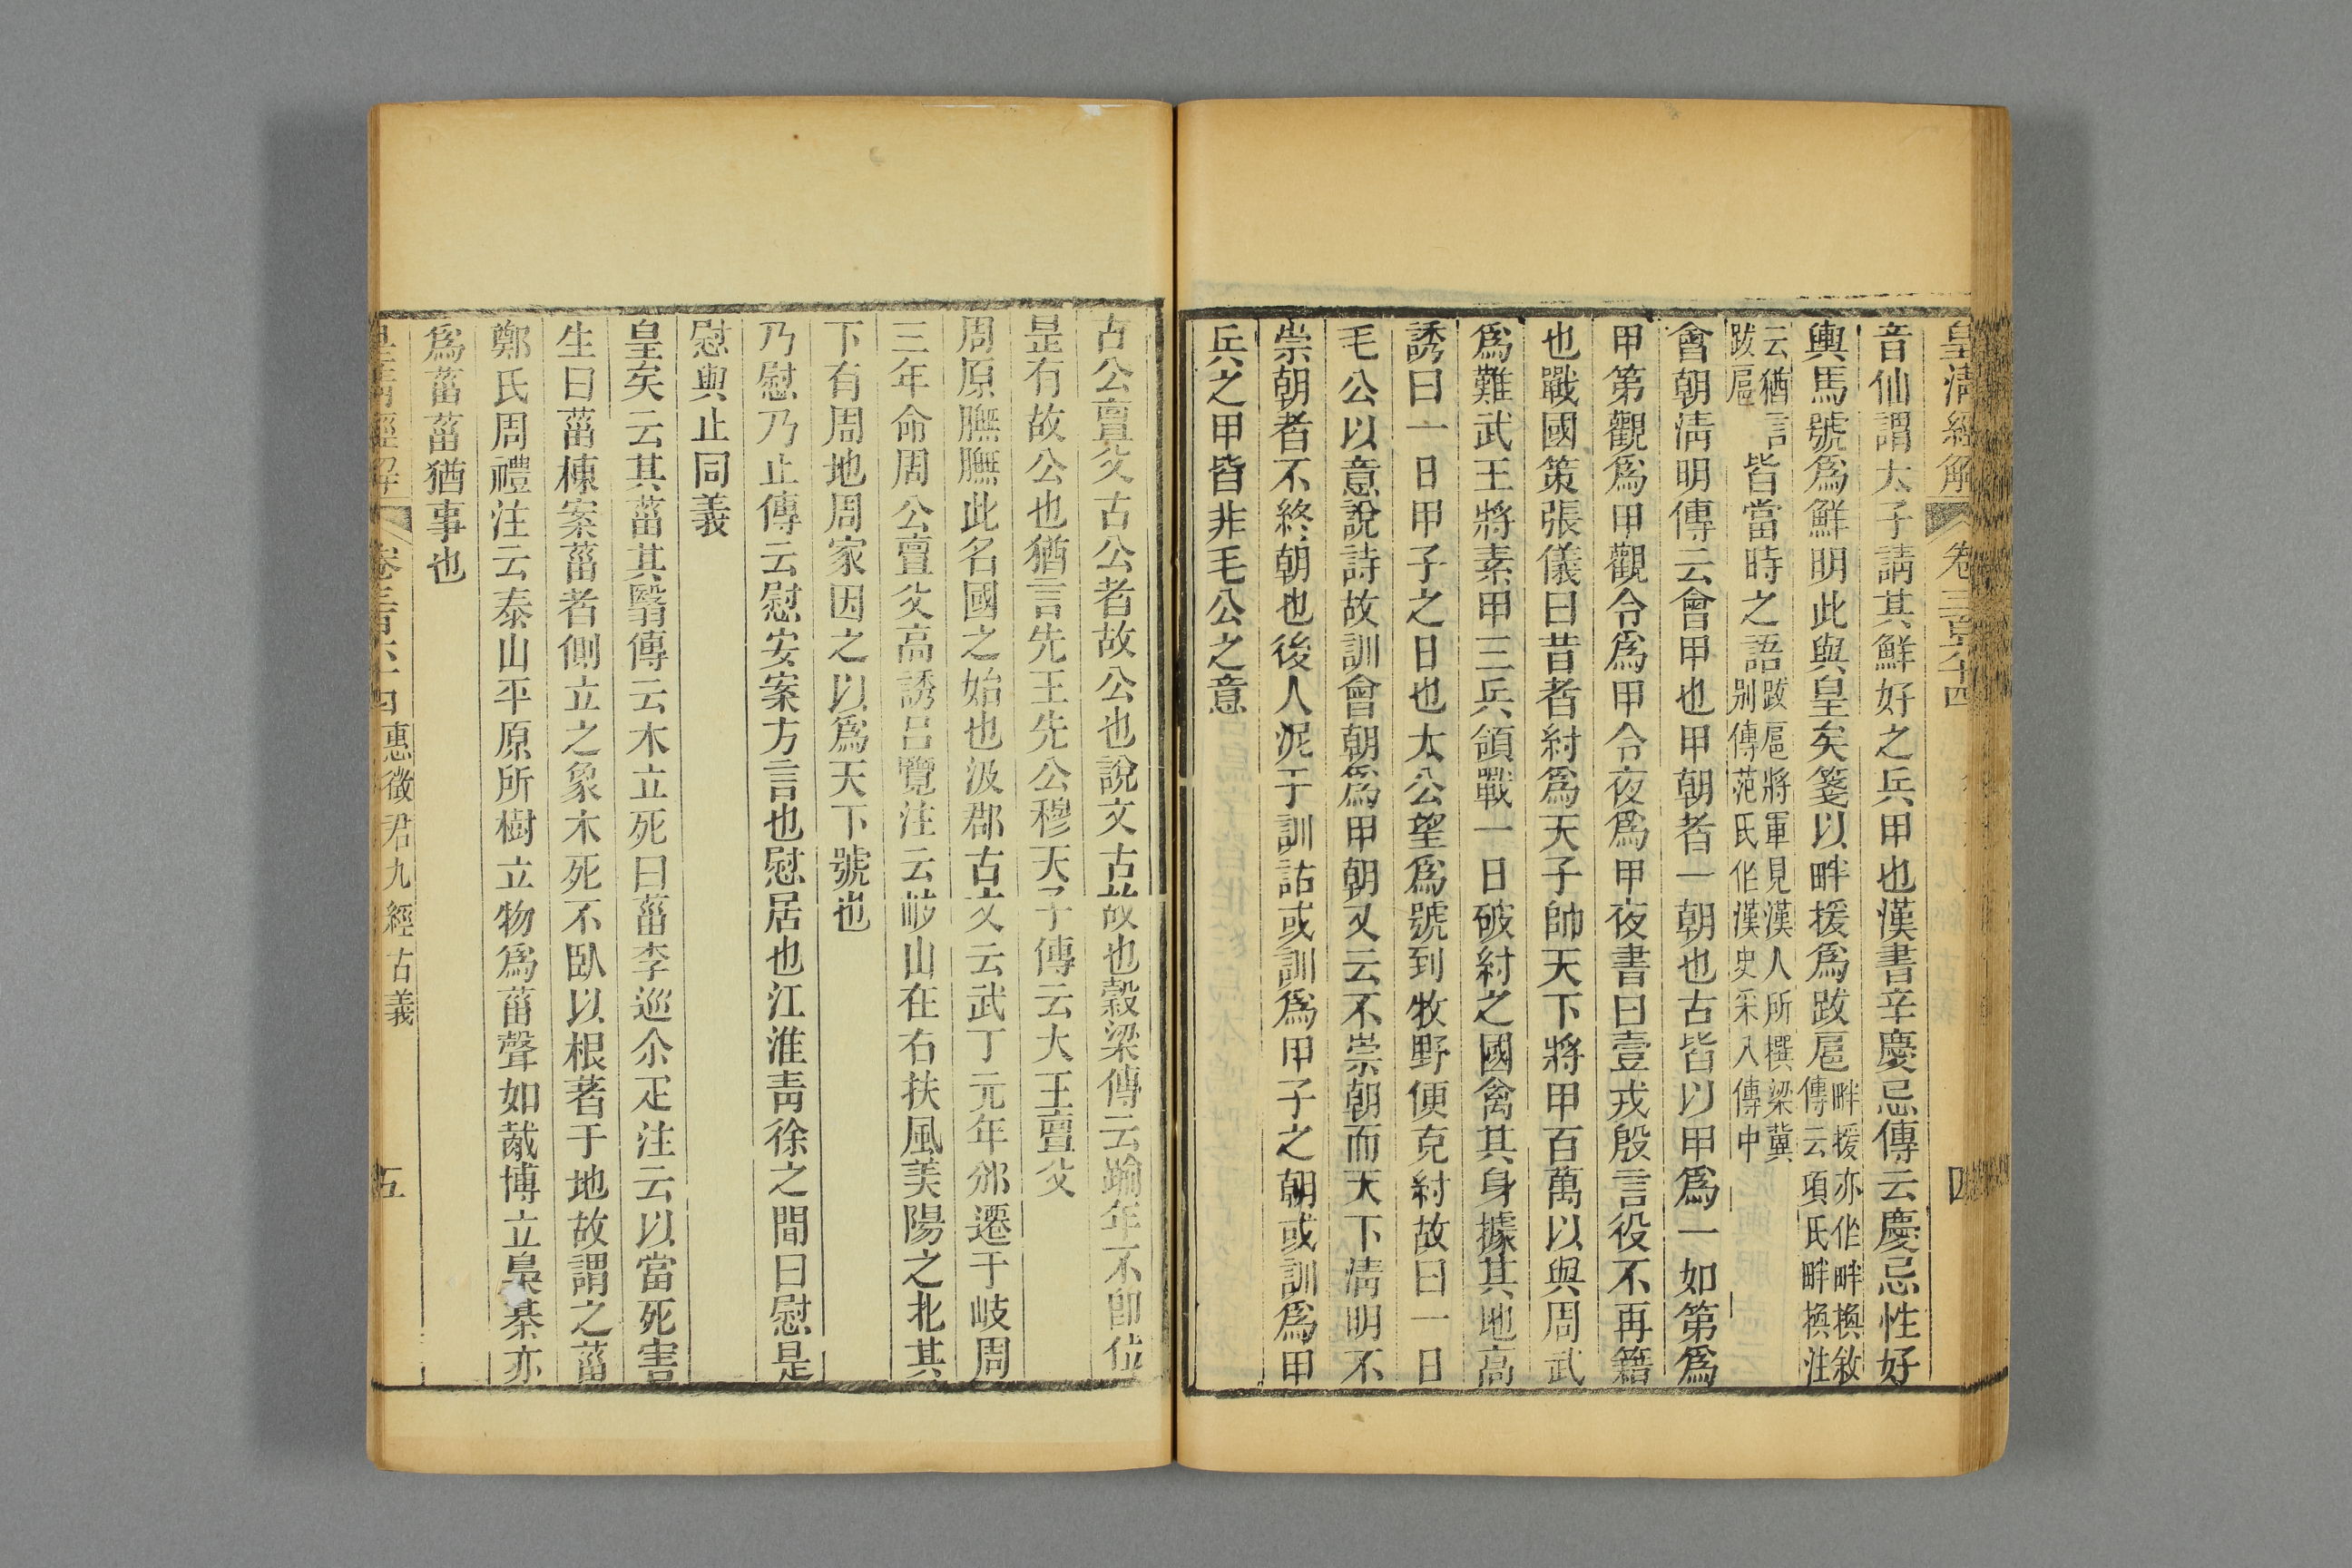 皇淸經解 卷三百六十四 四
音仙謂太子請其鮮好之兵甲也漢書辛慶忌傳云慶忌性好
輿馬號爲鮮明此與皇矣箋以畔援爲跋扈畔援亦作畔換敘傳云項氏畔換注
云猶言跋扈皆當時之語跋扈將軍見漢人所撰梁冀別傳范氏作漢史采入傳中
會朝淸明傳云會甲也甲朝者一朝也古皆以甲爲一如第爲
甲第觀爲甲觀令爲甲令夜爲甲夜書曰壹戎殷言役不再籍
也戰國策張儀曰昔者紂爲天子帥天下將甲百萬以與周武
爲難武王將素甲三兵領戰一日破紂之國禽其身據其地高
誘曰一日甲子之日也太公望爲號到牧野便克紂故曰一日
毛公以意說詩故訓會朝爲甲朝又云不崇朝而天下淸明不
崇朝者不終朝也後人泥于訓詁或訓爲甲子之朝或訓爲甲
兵之甲皆非毛公之意
古公亶父古公者故公也說文古故也穀梁傳云踰年不卽位
是有故公也猶言先王先公穆天子傳云大王亶父
周原膴膴此名國之始也汲郡古文云武丁元年邠遷于岐周
三年命周公亶父高誘呂覽注云岐山在右扶風美陽之北其
下有周地周家因之以爲天下號也
乃慰乃止傳云慰安案方言也慰居也江淮靑徐之間曰慰是
慰與止同義
皇矣云其菑其翳傳云木立死曰菑李巡尒疋注云以當死害
生曰菑棟案菑者側立之象木死不臥以根著于地故謂之菑
鄭氏周禮注云泰山平原所樹立物爲菑聲如胾博立梟棊亦
爲菑菑猶事也
皇淸經解 卷三百六十四 惠徵君九經古義 五